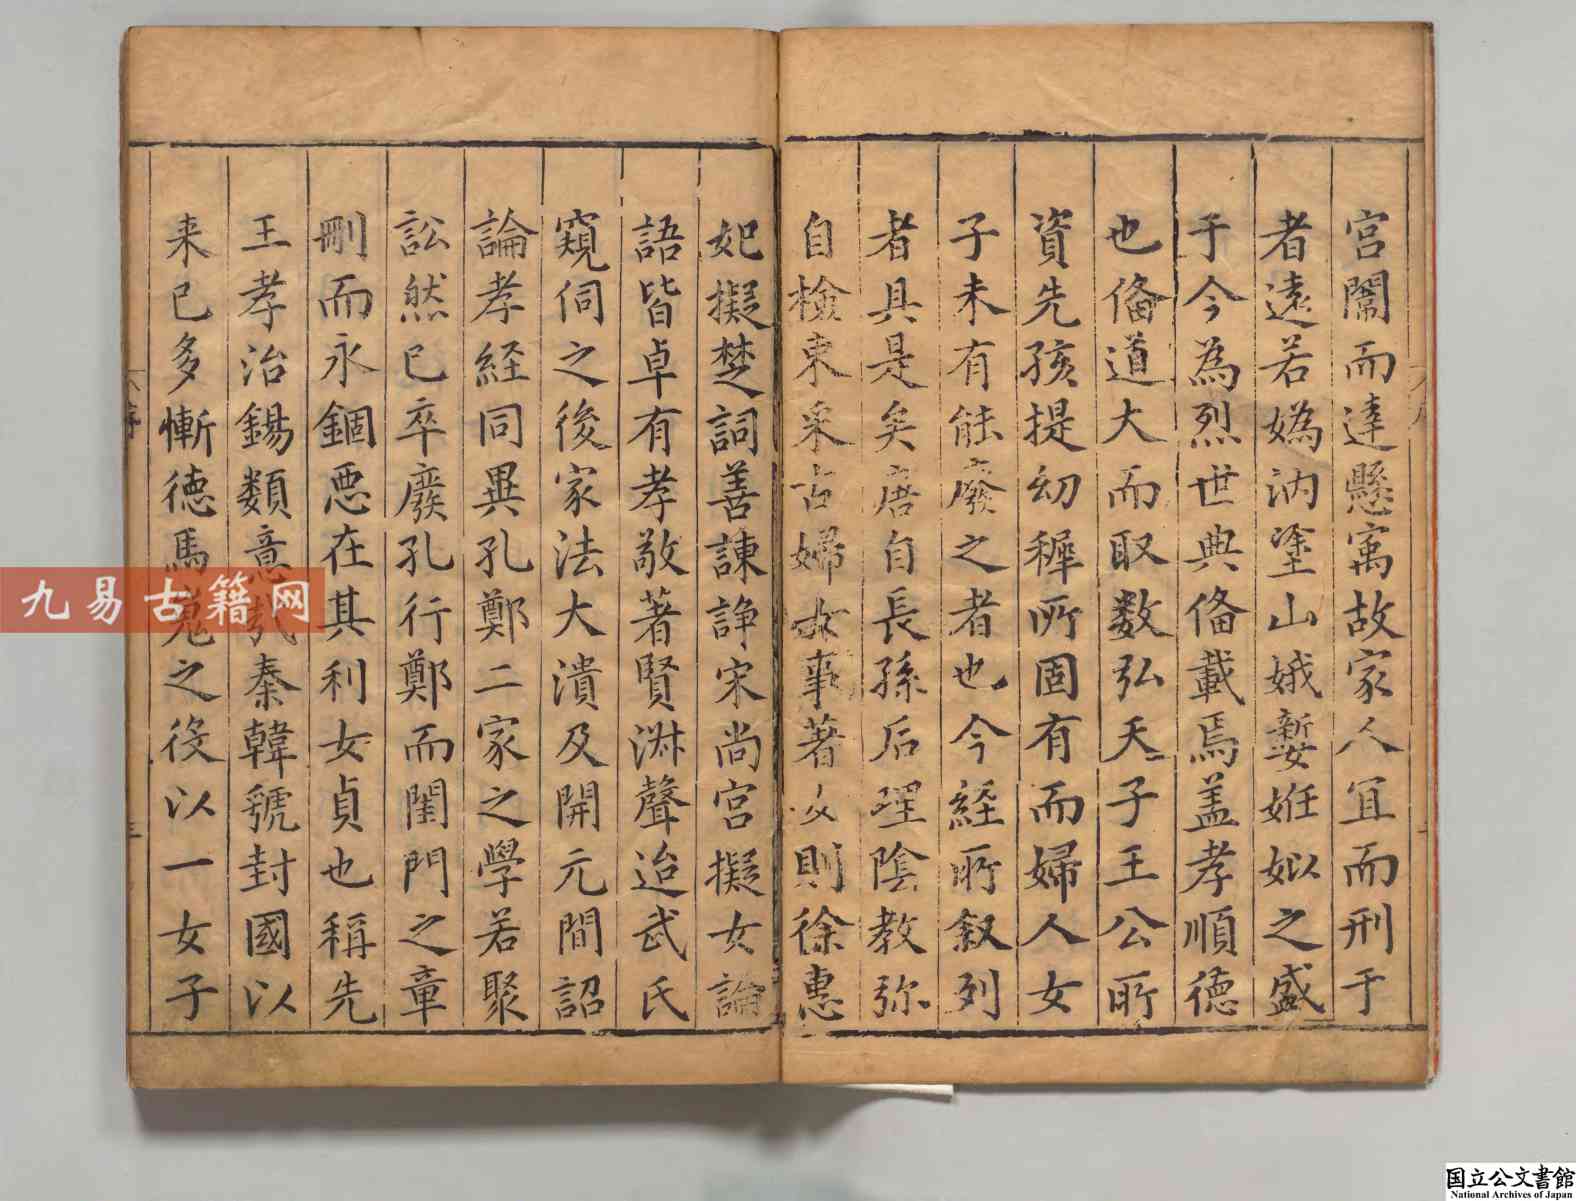 宮闈而達懸寓故家人宜而刑于
者遠若嬀汭塗山娥嫠姙姒之盛
于今為烈世典俻載焉盖孝順德
也俻道大而取数弘天子王公所
資先孩提幼穉所固有而婦人女
子未有能廢之者也今経所叙列
者具是矣唐自長孫后理陰教弥
自檢束采古婦女事著女則徐惠
妃擬楚詞善諫諍宋尚宮擬女論
語皆卓有孝敬著賢淋聲迨武氏
窺伺之後家法大潰及開元間詔
論孝経同異孔鄭二家之學若聚
訟然已卒廢孔行鄭而閨門之章
刪而永錮悪在其利女貞也稱先
王孝治錫類意哉秦韓虢封國以
来已多慚徳馬嵬之役以一女子
序
三
九易古籍网
国立公文書館
National Archives of Japan